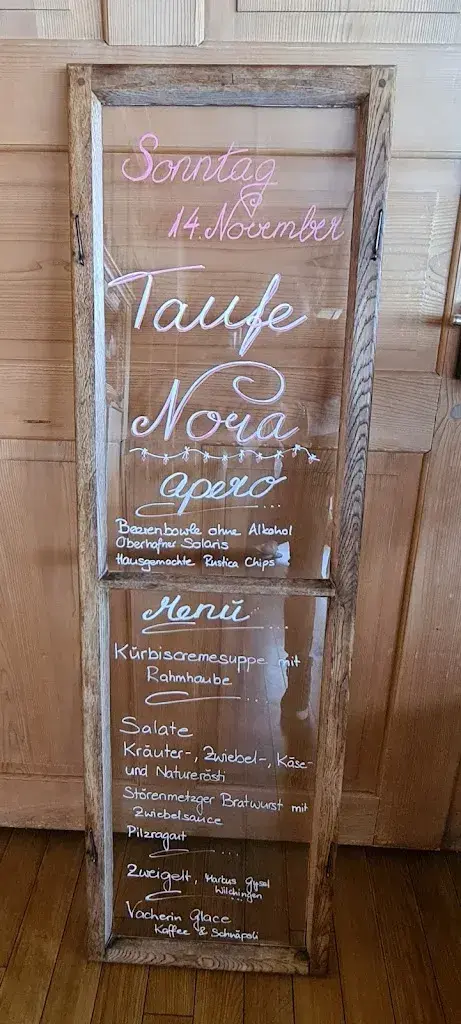 Sonntag
14. November
Taufe
Nora
apero
Beerenbowle ohne Alkohol
Oberhofner Solaris
Hausgemachte Rustica Chips
Menü
Kürbiscremesuppe mit
Rahmhaube
Salate
Kräuter-, Zwiebel-, Käse-
und Naturerösti
Störenmetzger Bratwurst mit
Zwiebelsauce
Pilzragout
Zweigelt, Markus Gysel
Wilchingen
Vacherin Glace
Kaffee & Schnäpsli